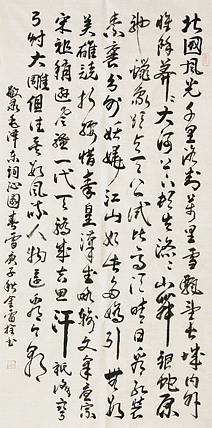 北國風光千里冰封萬里雪飄望長城内外
惟餘莽莽大河上下頓失滔滔山舞銀蛇原
馳蠟象欲与天公試比高須晴日看紅裝
素裹分外妖嬈江山如此多嬌引無數
英雄競折腰惜秦皇漢武略輸文采唐宗
宋祖稍遜風騷一代天驕成吉思汗祇識彎
弓射大雕俱往矣數風流人物還看今朝
敬录毛澤東詞沁園春雪庚子秋金書